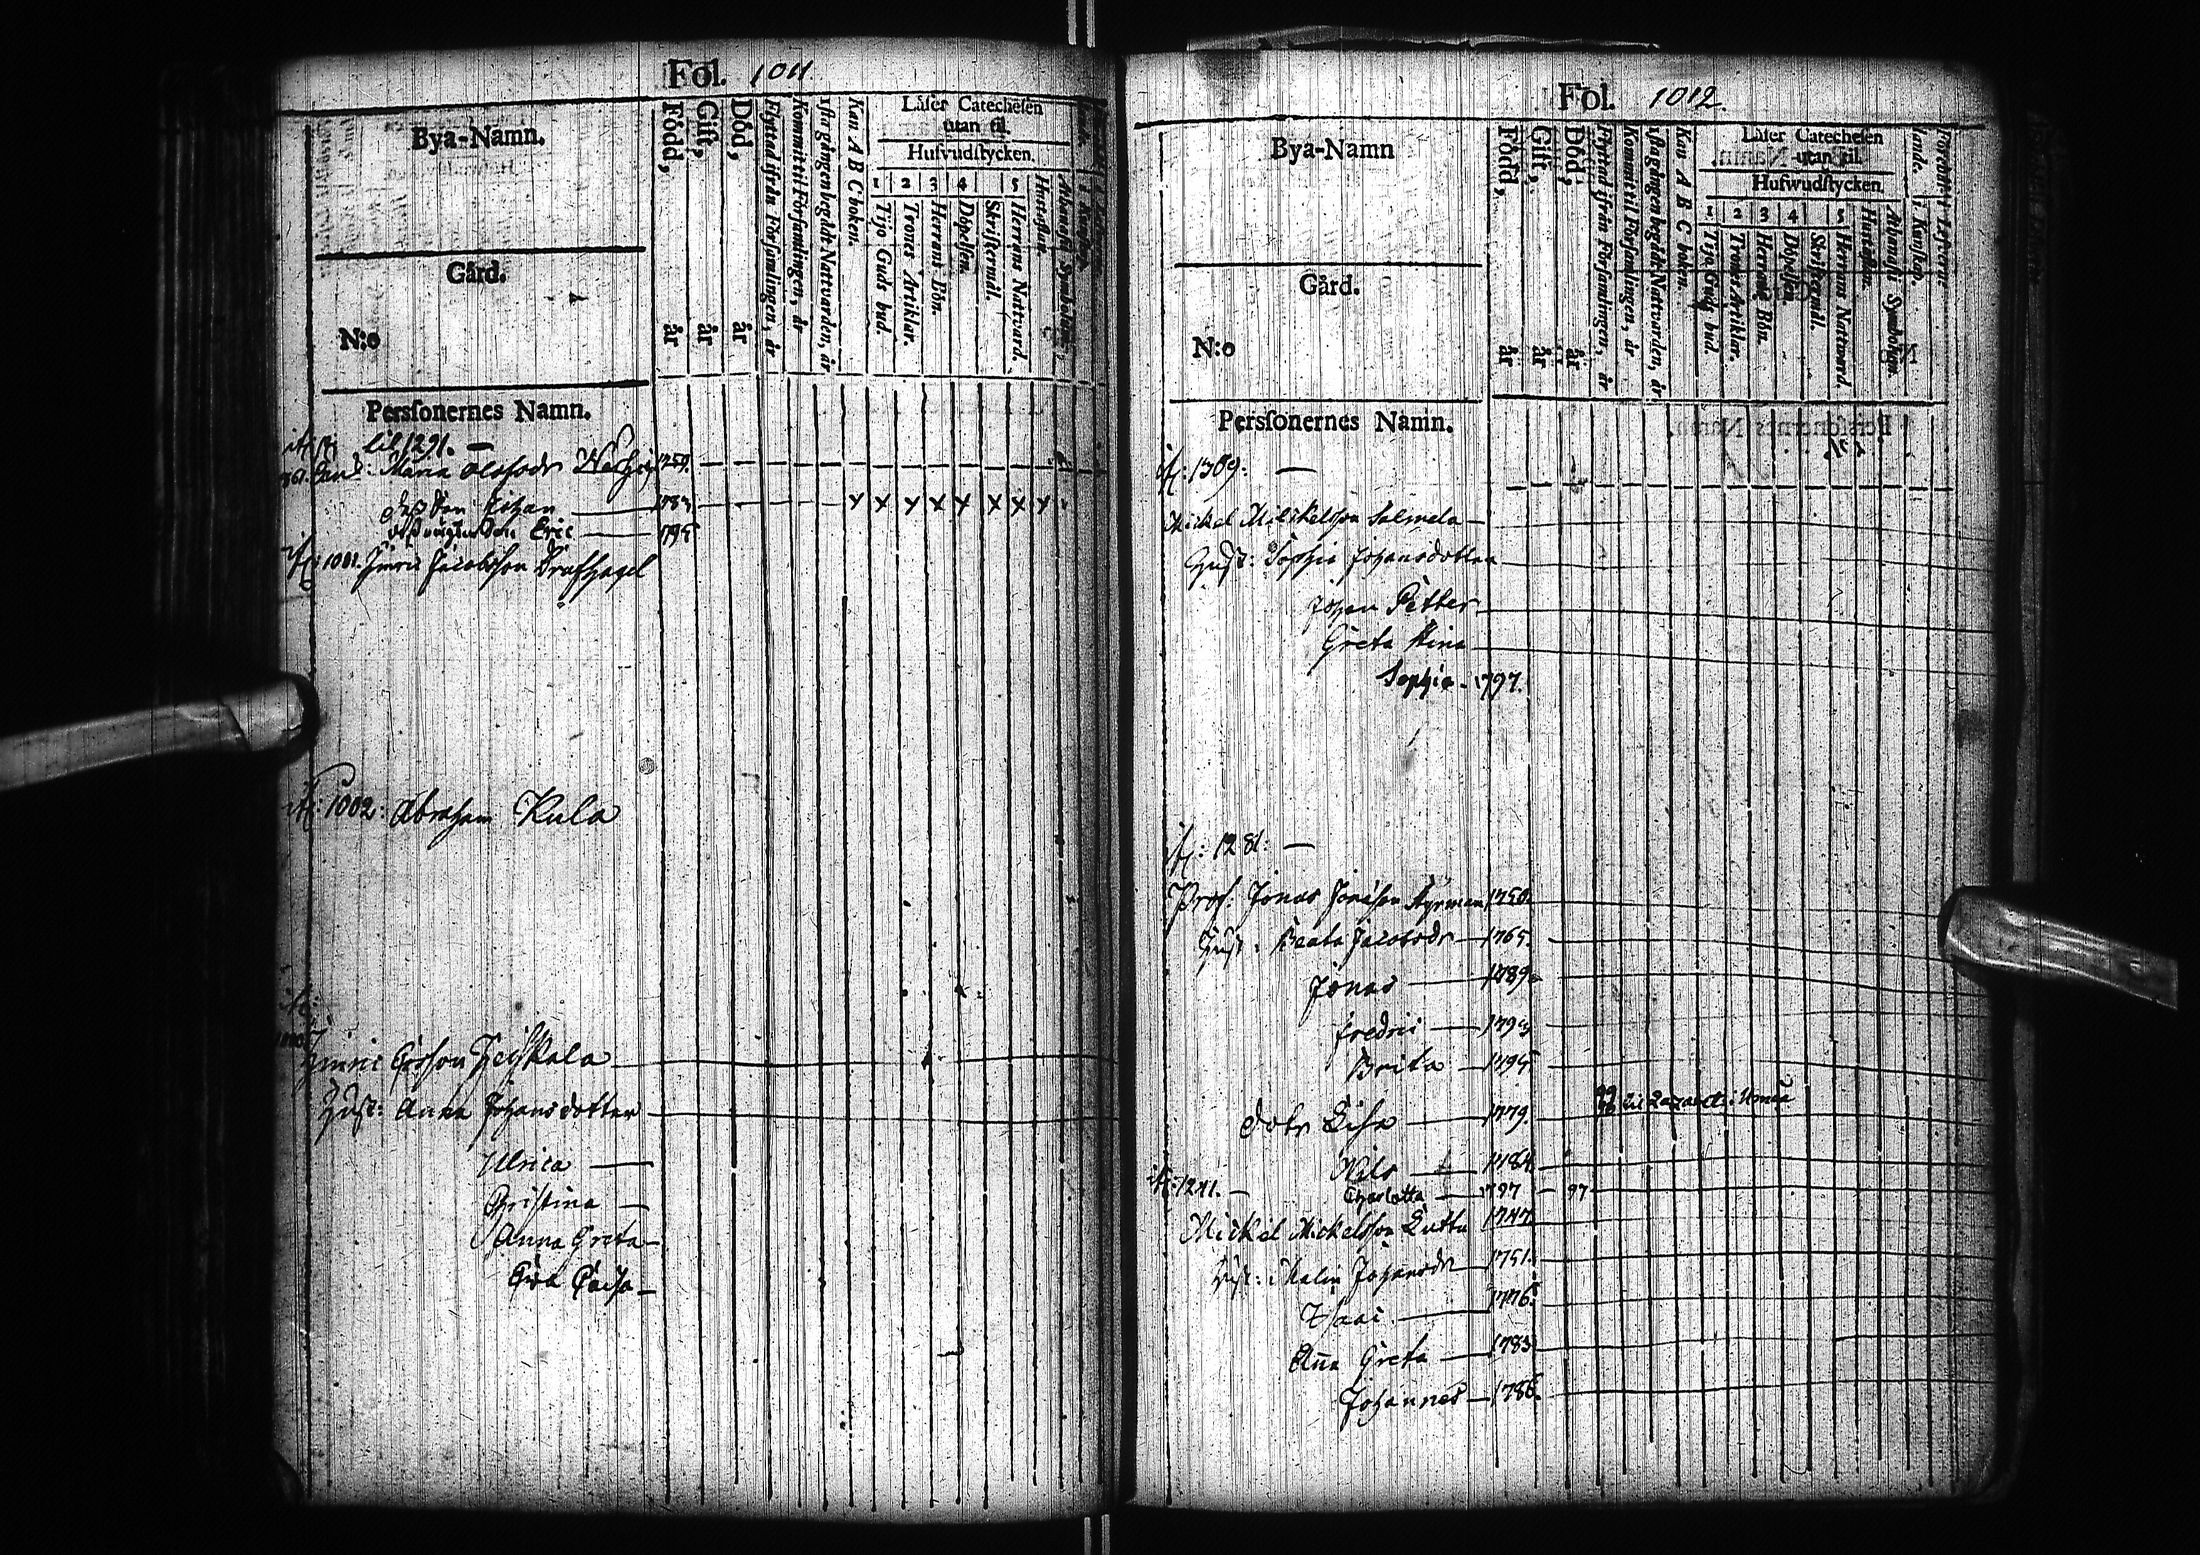 Fol. 1011
Bya-Namn.
Gård.
N:o
Född, år
Gift, år
Död, år
Flyttad ifrån Församlingen, år
Kommit til Församlingen, år
1sta gången begådt Nattvarden, år
Kan A B C boken.
Läser Catechesen
utan til.
Hufvudstycken.
1 2 3 4 5
Tijo Guds bud.
Trones Artiklar.
Herrans Bön.
Döpelsen.
Skriftermål.
Herrans Nattvard.
Hustaflan.
Athanasii Symbolum.
Personernes Namn.
til 1291. —
Maria Olofsdr 1754.
Johan 1783 x x x x x x x x
Eric 1795
1001. Hinric Jacobsson
1002: Abraham Kula
Hinric Ersson
Hust: Anna Johansdotter
Ulrica
Christina
Anna Greta
Fol. 1012
Bya-Namn
Gård.
N:o
Född, år
Gift, år
Död, år
Flyttad ifrån Församlingen, år
Kommit til Församlingen, år
1sta gången begådt Nattvarden, år
Kan A B C boken.
Läser Catechesen
utan til.
Hufwudstycken.
1 2 3 4 5
Tijo Guds bud.
Trones Artiklar.
Herrans Bön.
Döpelsen.
Skriftermål.
Herrans Nattvard.
Hustaflan.
Athanasii Symbolum.
Personernes Namn.
1309: —
Mickel Mickelsson Salmela
Hust: Sophia Johansdotter
Johan Petter
Greta Stina
Sophia. 1797.
1281: —
Jonas Jonasson Styrman 1750.
Hust: Beata Jacobsdr 1765.
Jonas 1789
Fredric 1793
Brita 1795
dotr Lisa 1779. til Lazaret i Umeå
Nils 1784.
1241. — Charlotta 1797 — 97
Mickel Mickelsson 1747.
Hust: Malin Johansdr 1751.
Isaac 1776.
Anna Greta 1783
Johannes 1786.